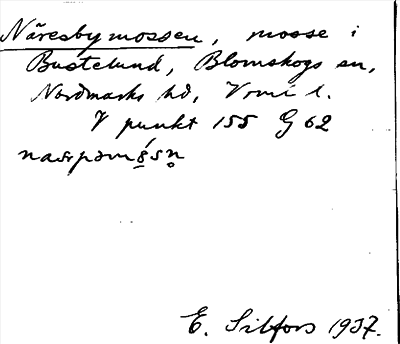 Näresbymossen, mosse i
Bustelund, Blomskogs sn,
Nordmarks hd, Vrml l.
V punkt 155 G 62
E. Silfors 1937.